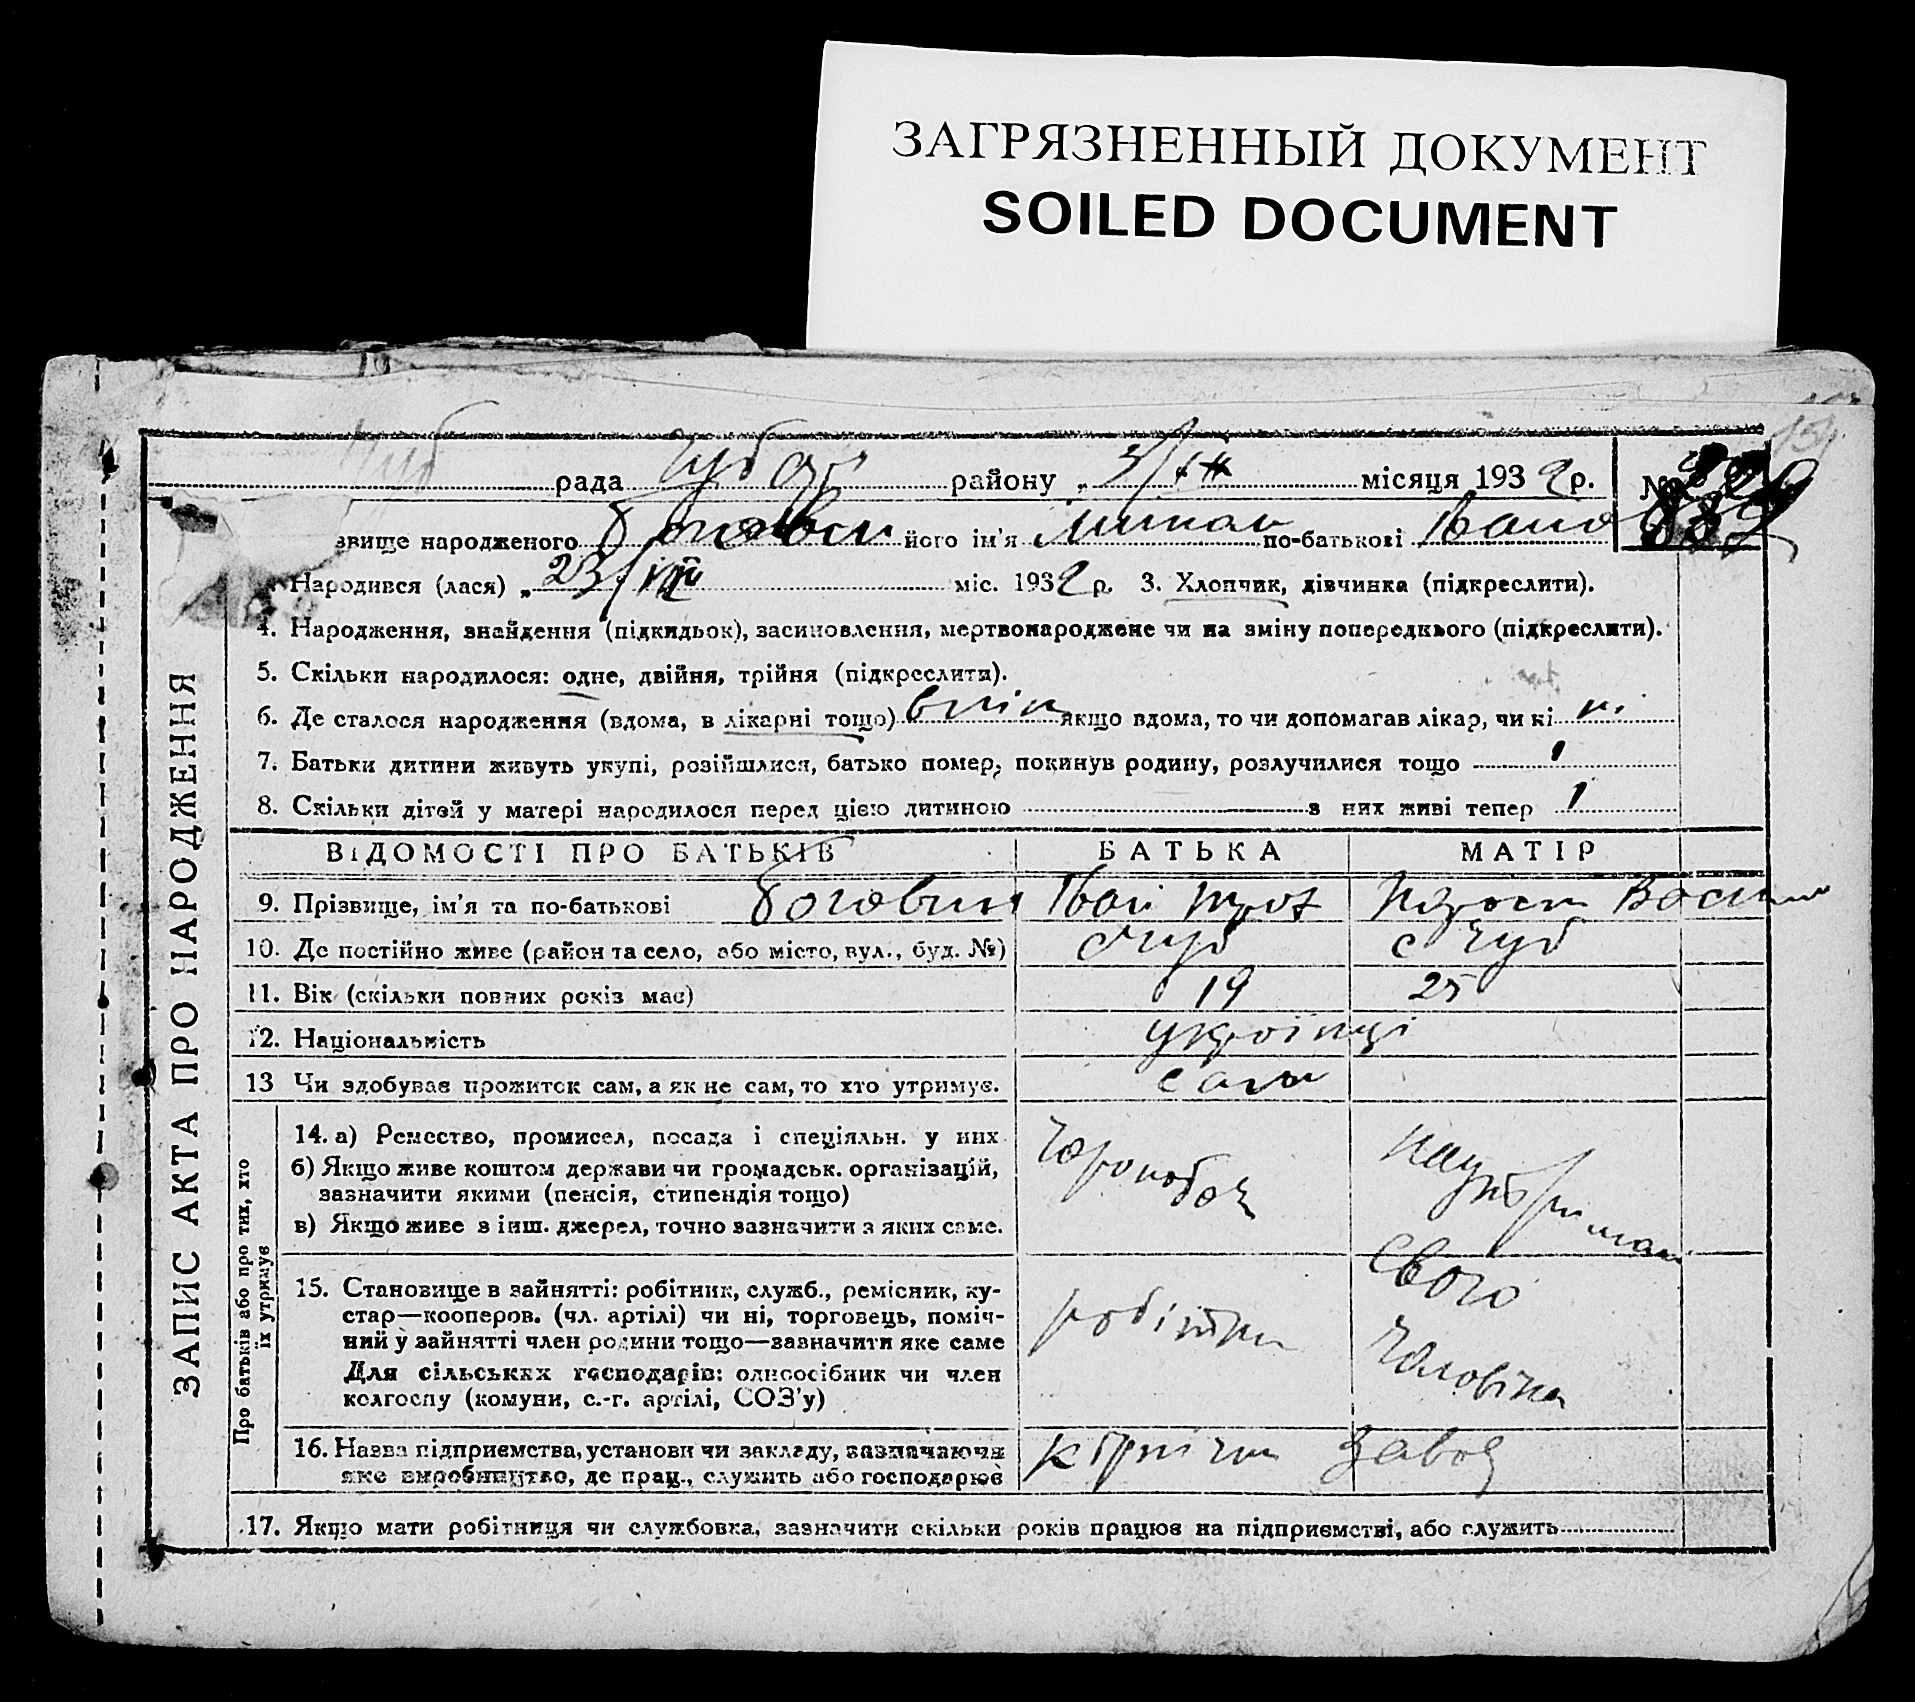 ЗАГРЯЗНЕННЫЙ ДОКУМЕНТ
SOILED DOCUMENT
рада району „ місяця 1932 р. №
звище народженого його ім'я по-батькові
Народився (лася) „ 23/VII міс. 1932 р. 3. Хлопчик, дівчинка (підкреслити).
4. Народження, знайдення (підкидьок), засиновлення, мертвонароджене чи на зміну попереднього (підкреслити).
5. Скільки народилося: одне, двійня, трійня (підкреслити).
6. Де сталося народження (вдома, в лікарні тощо) якщо вдома, то чи допомагав лікар, чи ні ні
7. Батьки дитини живуть укупі, розійшлися, батько помер, покинув родину, розлучилися тощо 1
8. Скільки дітей у матері народилося перед цією дитиною з них живі тепер 1
ВІДОМОСТІ ПРО БАТЬКІВ БАТЬКА МАТІР
9. Прізвище, ім'я та по-батькові
10. Де постійно живе (район та село, або місто, вул., буд. №) с Чуб с Чуб
11. Вік (скільки повних років має) 19 25
12. Національність українці
13 Чи здобуває прожиток сам, а як не сам, то хто утримує. сам
14. а) Ремество, промисел, посада і спеціяльн. у них
б) Якщо живе коштом держави чи громадськ. організацій,
зазначити якими (пенсія, стипендія тощо)
в) Якщо живе з інш. джерел, точно зазначити з яких саме.
свого
15. Становище в зайнятті: робітник, служб., ремісник, ку-
стар—кооперов. (чл. артілі) чи ні, торговець, поміч-
ний у зайнятті член родини тощо—зазначити яке саме
Для сільських господарів: одноосібник чи член
колгоспу (комуни, с.-г. артілі, СОЗ'у)
робітник
чоловіка
16. Назва підприємства, установи чи закладу, зазначаючи
яке виробництво, де прац., служить або господарює
завод
17. Якщо мати робітниця чи службовка, зазначити скільки років працює на підприємстві, або служить
ЗАПИС АКТА ПРО НАРОДЖЕННЯ
Про батьків або про тих, хто
їх утримує